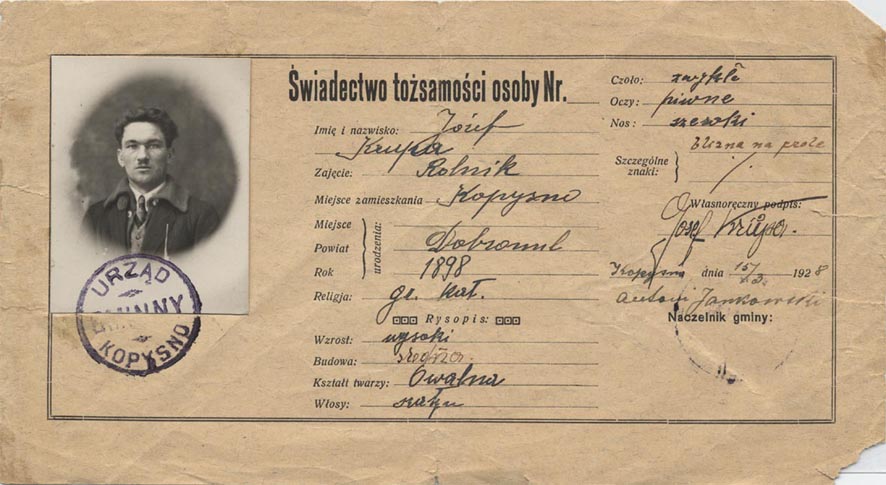 Świadectwo tożsamości osoby Nr.
Imię i nazwisko: Józef
Krupa
Zajęcie: Rolnik
Miejsce zamieszkania Kopysno
Miejsce
Powiat Dobromil
Rok 1898
urodzenia:
Religja: gr. kat.
Rysopis:
Wzrost: wysoki
Budowa:
Kształt twarzy: Owalna
Włosy:
Czoło: zwykłe
Oczy: piwne
Nos: szeroki
Szczególne znaki: blizna na
Własnoręczny podpis:
Josef Krupa.
Kopysno dnia 15/3 1928
Antoni Jankowski
Naczelnik gminy:
URZĄD
GMINNY
KOPYSNO